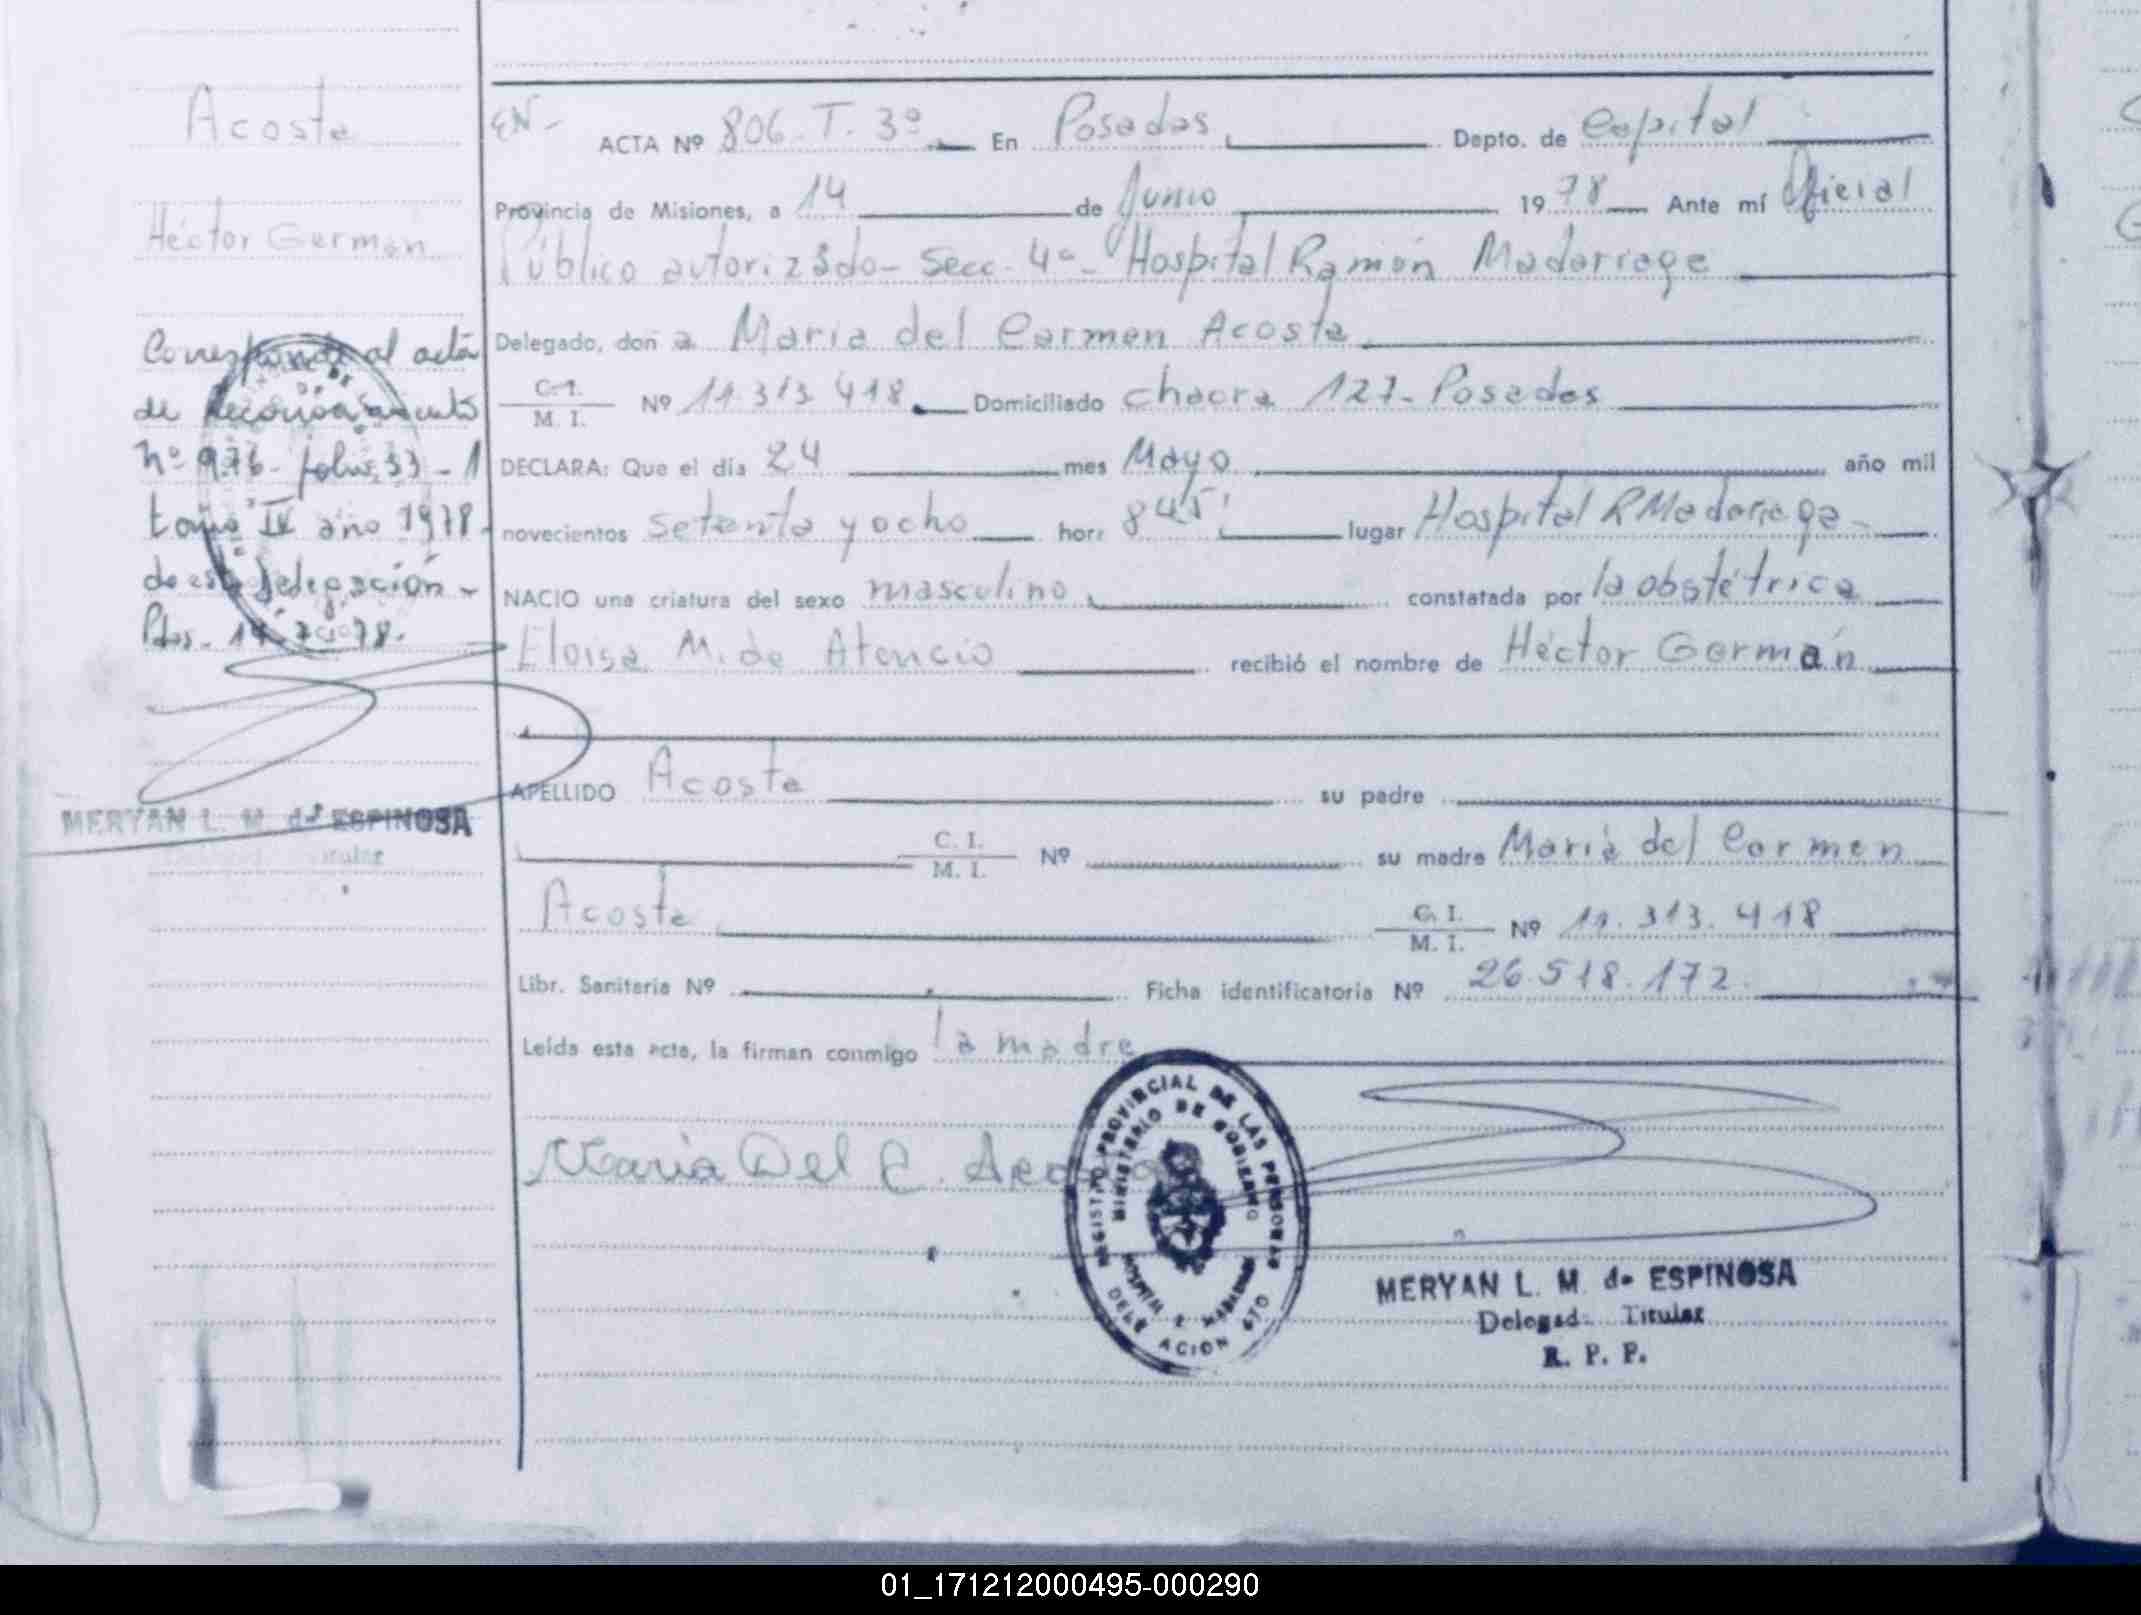 Acosta
Héctor Germán
Corresponde al acta
de Reconocimiento
Nº 976 - folio 33 - 1
tomo IV año 1978.
de esta delegación -
Pdas. 14 7 78.
MERYAN L. M. de ESPINOSA
Titular
EN -
ACTA Nº 806. T. 3º En Posadas Depto. de Capital
Provincia de Misiones, a 14 de Junio 1978 Ante mí Oficial
Público autorizado - Secc. 4ª - Hospital Ramón Madariaga
Delegado, doña María del Carmen Acosta
C. I. / M. I. Nº 11.313.418. Domiciliado chacra 127 - Posadas
DECLARA: Que el día 24 mes Mayo año mil
novecientos setenta y ocho hora 8 45' lugar Hospital R Madariaga -
NACIO una criatura del sexo masculino, constatada por la obstétrica
Eloisa M. de Atencio recibió el nombre de Héctor Germán
APELLIDO Acosta su padre
C. I. / M. I. Nº su madre María del Carmen
Acosta C. I. / M. I. Nº 11.313.418
Libr. Sanitaria Nº Ficha identificatoria Nº 26.518.172
Leída esta acta, la firman conmigo la madre
María Del C. Acosta
REGISTRO PROVINCIAL DE LAS PERSONAS
MINISTERIO DE GOBIERNO
HOSPITAL R. MADARIAGA
MERYAN L. M. de ESPINOSA
Delegada Titular
R. P. P.
01_171212000495-000290